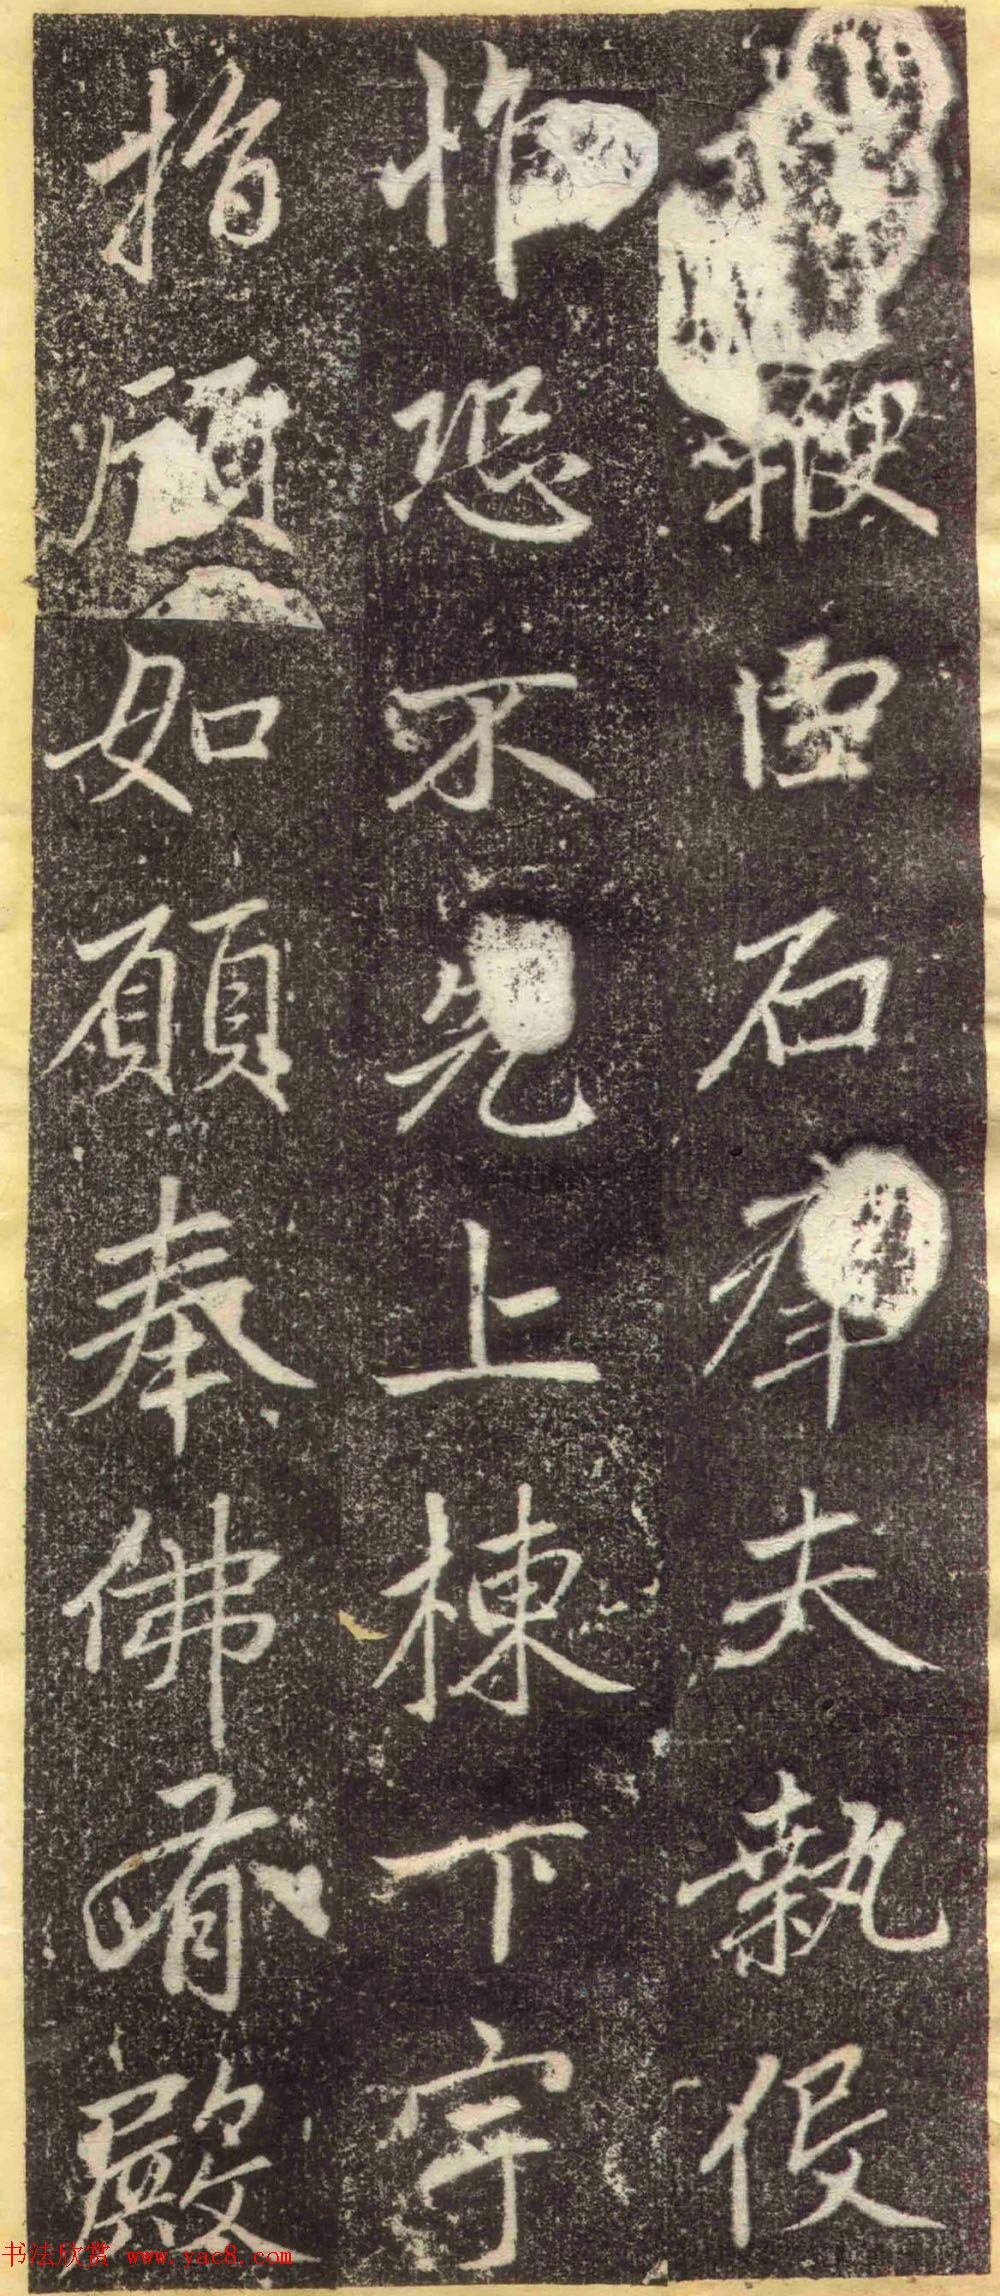 石夫執役
惟恐不先上棟下宇
指顧如願奉佛有殿
书法欣赏 www.yac8.com